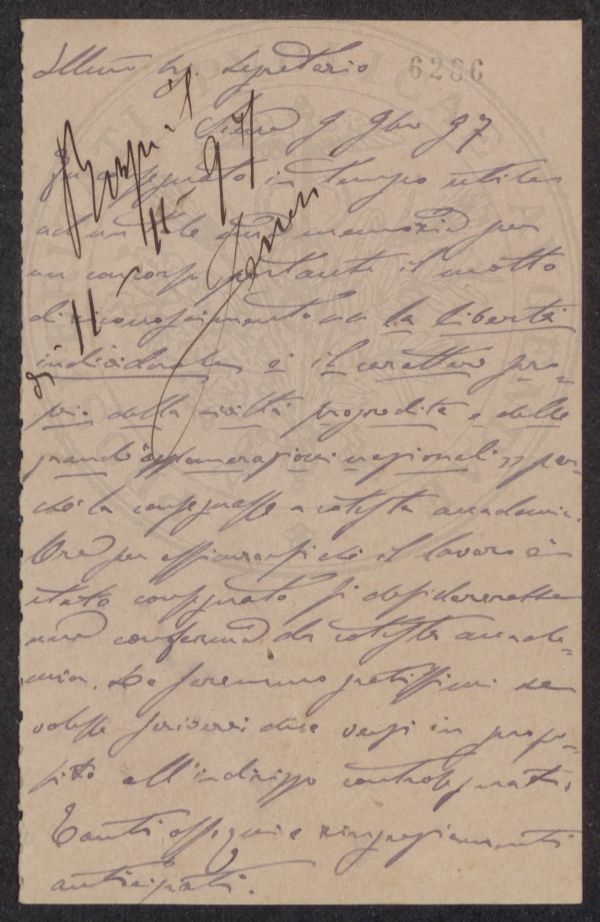 Illmo Sig. Segretario 6286
Siena 9 9bre 97
Risp. il
11-11-97
in tempo utile
ad un le due memorie per
un concorso portante il motto
di riconoscimento «« la libertà
individuale è il carattere pro=
prio della civiltà progredita e delle
grandi agglomerazioni nazionali »» per=
chè la consegnasse a cotesta accademia.
Ora per assicurarsi che il lavoro è
stato consegnato si desidererebbe
una conferma da cotesta accade=
mia. Le saremmo gratissimi se
volesse scriverci due versi in propo=
sito all'indirizzo controsegnato.
Tanti ossequi e ringraziamenti
anticipati.